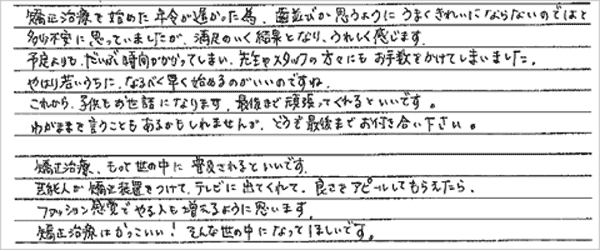 矯正治療を始めた年令が遅かった為、歯並びが思うようにうまくきれいにならないのではと
多少不安に思っていましたが、満足のいく結果となり、うれしく感じます。
予定よりも、だいぶ時間がかかってしまい、先生やスタッフの方々にもお手数をかけてしまいました。
やはり若いうちに、なるべく早く始めるのがいいのですね。
これから、子供もお世話になります。最後まで頑張ってくれるといいです。
わがままを言うこともあるかもしれませんが、どうぞ最後までお付き合い下さい。
矯正治療、もっと世の中に普及されるといいです。
芸能人が矯正装置をつけて、テレビに出てくれて、良さをアピールしてもらえたら、
ファッション感覚でやる人も増えるように思います。
矯正治療はかっこいい！そんな世の中になってほしいです。